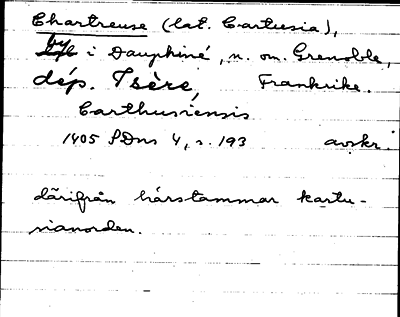 Chartreuse (lat. Cartusia),
by i Dauphiné, n. om. Grenoble,
dép. Isère, Frankrike.
Carthusiensis
1405 SDns 4, s. 193 avskr.
därifrån härstammar kartu-
sianorden.